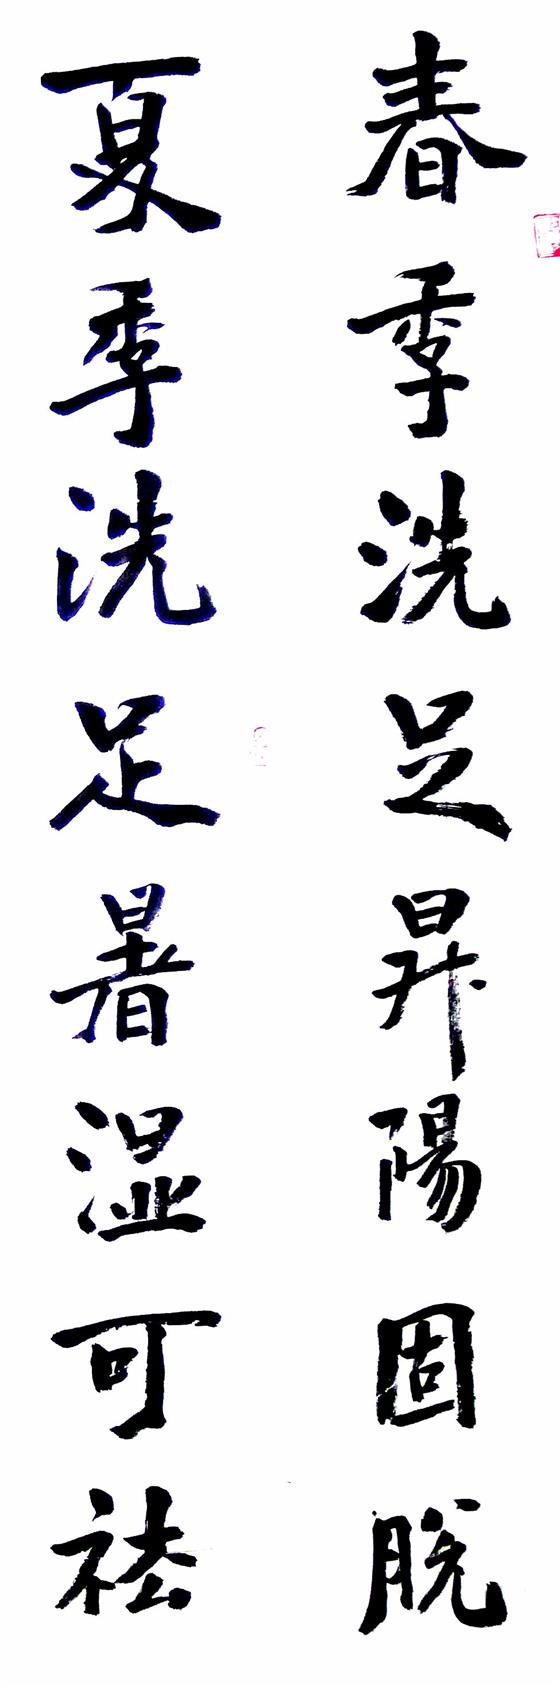 春季洗足昇陽固脱
夏季洗足暑湿可祛